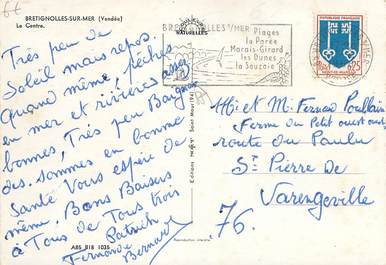 BRETIGNOLLES-SUR-MER (Vendée)
Le Centre.
Très peu de
Soleil mais repos.
Quand même, pêches
en mer et rivières assez
bonnes, Très peu Baigna
des. sommes en bonne
Santé Vous espère de
même. Bons Baisers
à Tous de Tous trois
Patrick
Fernande Bernard
ABS 818 1035
Reproduction interdite
BRETIGNOLLES S/MER
NATURELLES
Plages
la Parée
Marais-Girard
les Dunes
la Sauzaie
REPUBLIQUE FRANCAISE
0,25
MONT-DE-MARSAN
Mr et M. Fernan Poullain
Ferme du Petit ouest
route du Paulu
St Pierre de
Varengeville
76.